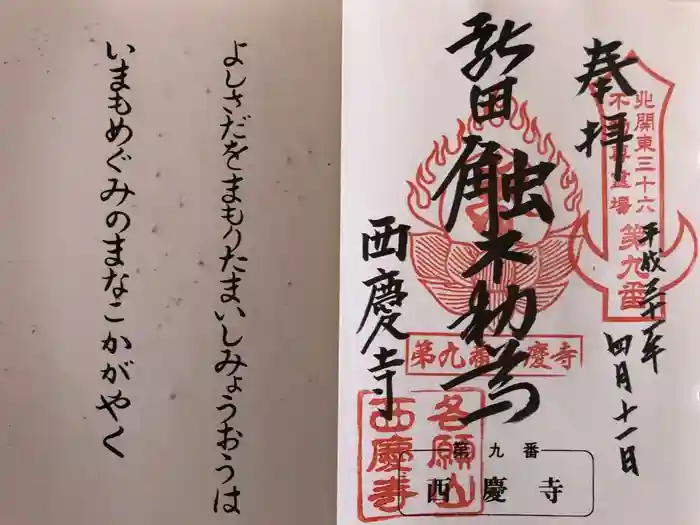 奉拝
北関東三十六
不動尊霊場
第九番
平成三十一年
四月十一日
新田
触不動尊
西慶寺
第九番 西慶寺
第九番
西慶寺
西慶寺
よしさだをまもりたまいしみょうおうは
いまもめぐみのまなこかがやく